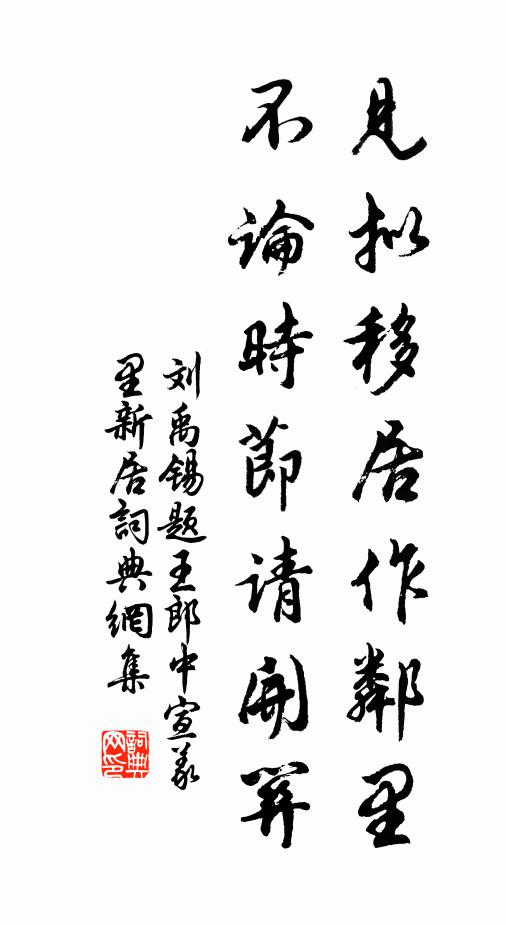 见拟移居作鄰里
不論時節请開關
刘禹锡题王郎中宣义
里新居詞典網集
詞典
网印